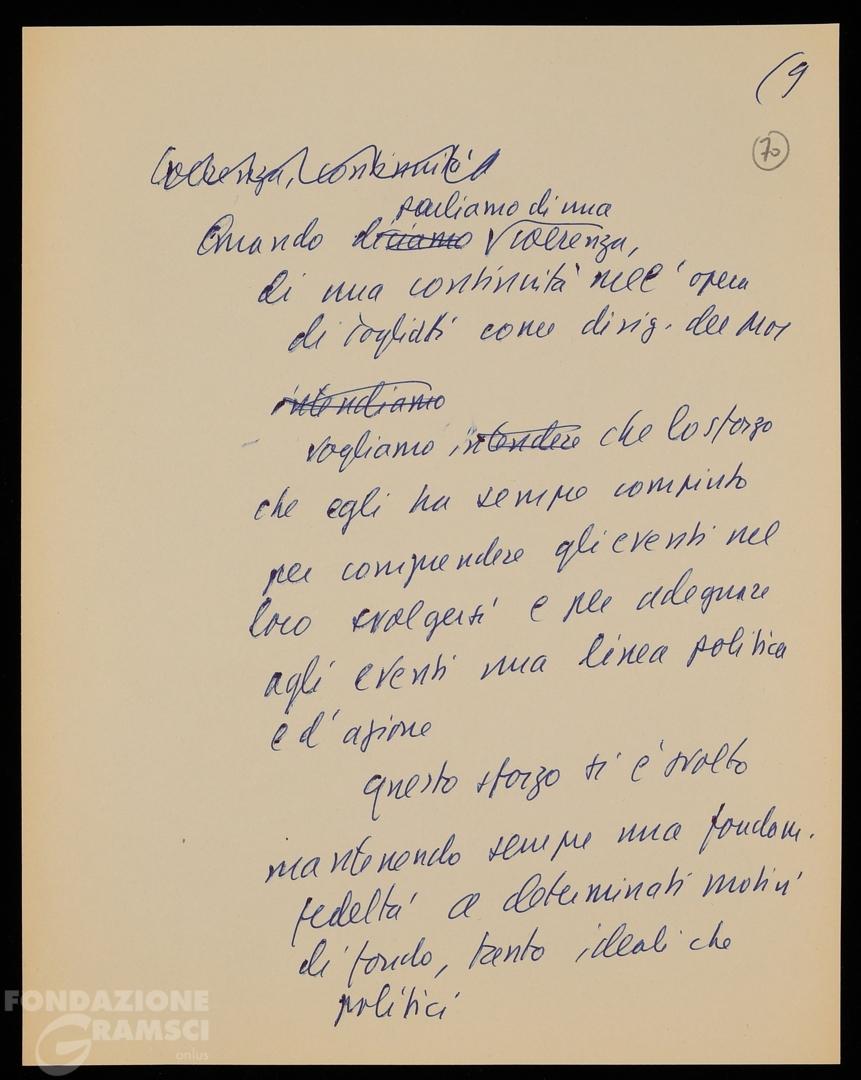 (9
70
Coerenza, continuità
parliamo di una
Quando diciamo coerenza,
di una continuità nell'opera
di Togliatti come dirig. del Mov
intendiamo
vogliamo intendere che lo sforzo
che egli ha sempre compiuto
per comprendere gli eventi nel
loro svolgersi e per adeguare
agli eventi una linea politica
e d'azione
questo sforzo si è svolto
mantenendo sempre una fondam.
fedeltà a determinati motivi
di fondo, tanto ideali che
politici
FONDAZIONE
GRAMSCI
onlus